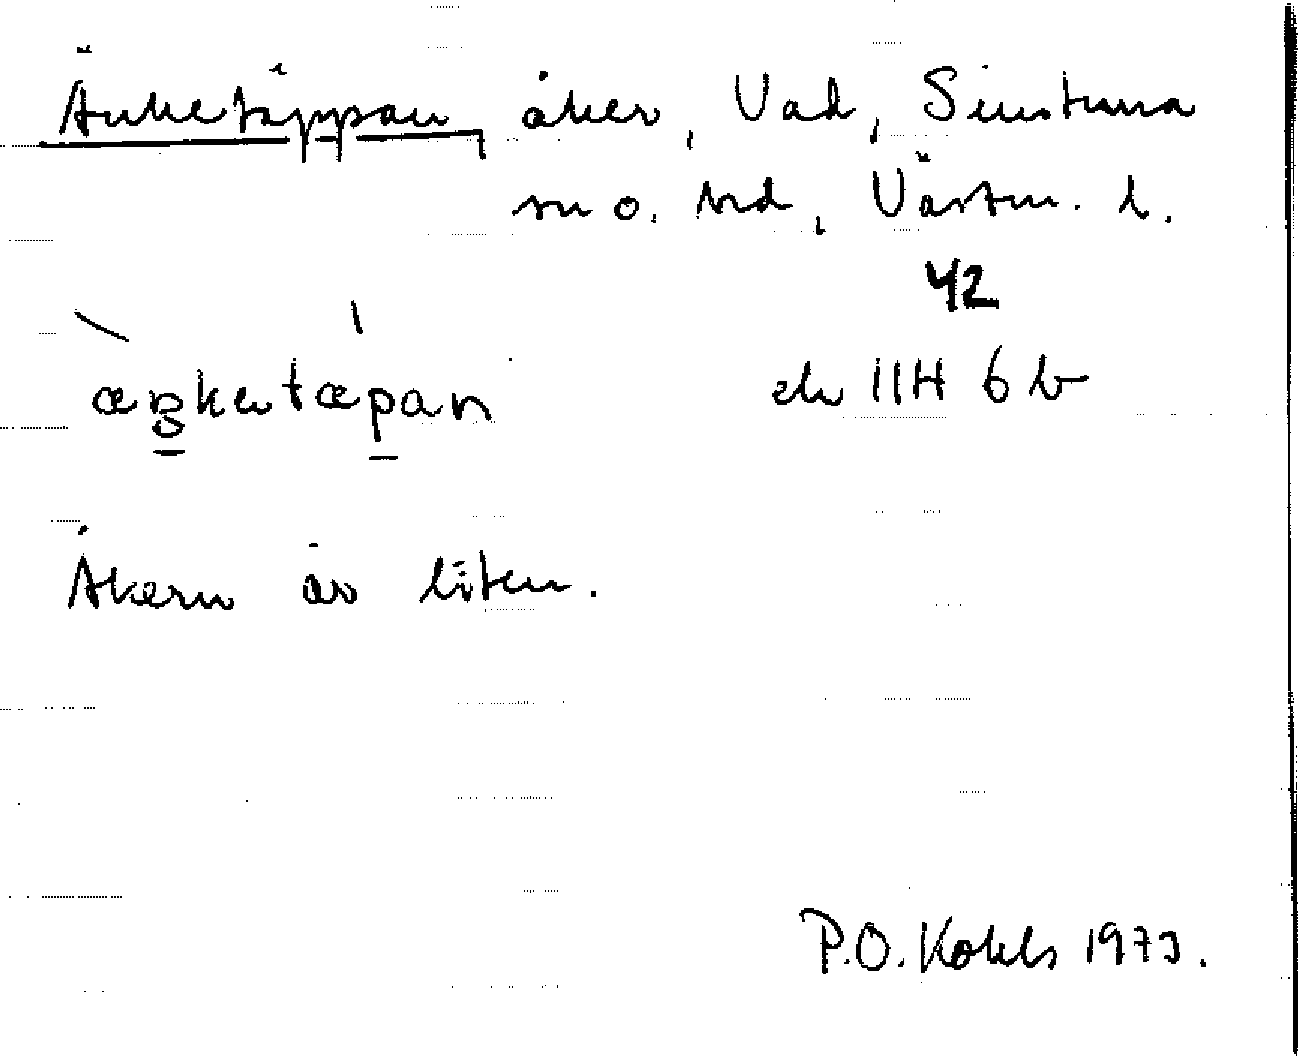 Änketäppan, åker, Vad, Simtuna
sn o. hd, Västm. l.
42
ek 11H 6 b
Åkern är liten.
P.O. Kohls 1973.